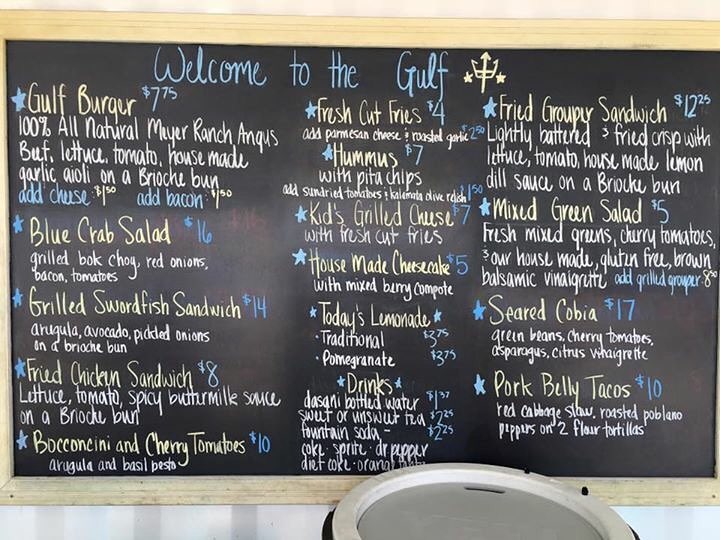 Welcome to the Gulf
Gulf Burger $7.75
100% All Natural Meyer Ranch Angus
Beef, lettuce, tomato, house made
garlic aioli on a Brioche bun
add cheese: $1.50 add bacon: $1.50
Blue Crab Salad $16
grilled bok choy, red onions,
bacon, tomatoes
Grilled Swordfish Sandwich $14
arugula, avocado, pickled onions
on a brioche bun
Fried Chicken Sandwich $8
Lettuce, tomato, spicy buttermilk sauce
on a Brioche bun
Bocconcini and Cherry Tomatoes $10
arugula and basil pesto
Fresh Cut Fries $4
add parmesan cheese & roasted garlic $2.50
Hummus $7
with pita chips
add sundried tomatoes & kalamata olive relish $1.50
Kid's Grilled Cheese $7
with fresh cut fries
House Made Cheesecake $5
with mixed berry compote
Today's Lemonade
· Traditional $3.75
· Pomegranate $3.75
Drinks
dasani bottled water $1.37
sweet or unsweet tea $2.25
fountain soda - $2.25
coke · sprite · dr pepper
diet coke · orange
Fried Grouper Sandwich $12.25
Lightly battered & fried crisp with
lettuce, tomato, house made lemon
dill sauce on a Brioche bun
Mixed Green Salad $5
Fresh mixed greens, cherry tomatoes,
& our house made, gluten free, brown
balsamic vinaigrette add grilled grouper: 8.50
Seared Cobia $17
green beans, cherry tomatoes,
asparagus, citrus vinaigrette
Pork Belly Tacos $10
red cabbage slaw, roasted poblano
peppers on 2 flour tortillas